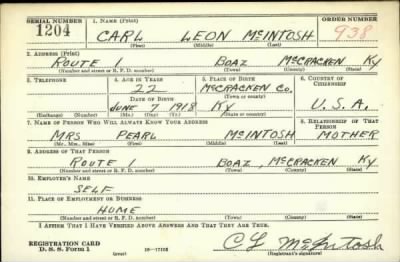 SERIAL NUMBER 1. NAME (Print) ORDER NUMBER
1204 CARL LEON McINTOSH 938
(First) (Middle) (Last)
2. ADDRESS (Print)
ROUTE 1 BOAZ McCRACKEN KY
(Number and street or R. F. D. number) (Town) (County) (State)
3. TELEPHONE 4. AGE IN YEARS 5. PLACE OF BIRTH 6. COUNTRY OF CITIZENSHIP
22 McCRACKEN CO.
DATE OF BIRTH (Town or county)
JUNE 7 1918 KY U.S.A.
(Exchange) (Number) (Mo.) (Day) (Yr.) (State or country)
7. NAME OF PERSON WHO WILL ALWAYS KNOW YOUR ADDRESS 8. RELATIONSHIP OF THAT PERSON
MRS PEARL McINTOSH MOTHER
(Mr., Mrs., Miss) (First) (Middle) (Last)
9. ADDRESS OF THAT PERSON
ROUTE 1 BOAZ, McCRACKEN KY
(Number and street or R. F. D. number) (Town) (County) (State)
10. EMPLOYER'S NAME
SELF
11. PLACE OF EMPLOYMENT OR BUSINESS
HOME
(Number and street or R. F. D. number) (Town) (County) (State)
I AFFIRM THAT I HAVE VERIFIED ABOVE ANSWERS AND THAT THEY ARE TRUE.
REGISTRATION CARD
D. S. S. Form 1 CL McIntosh
(over) (Registrant's signature)